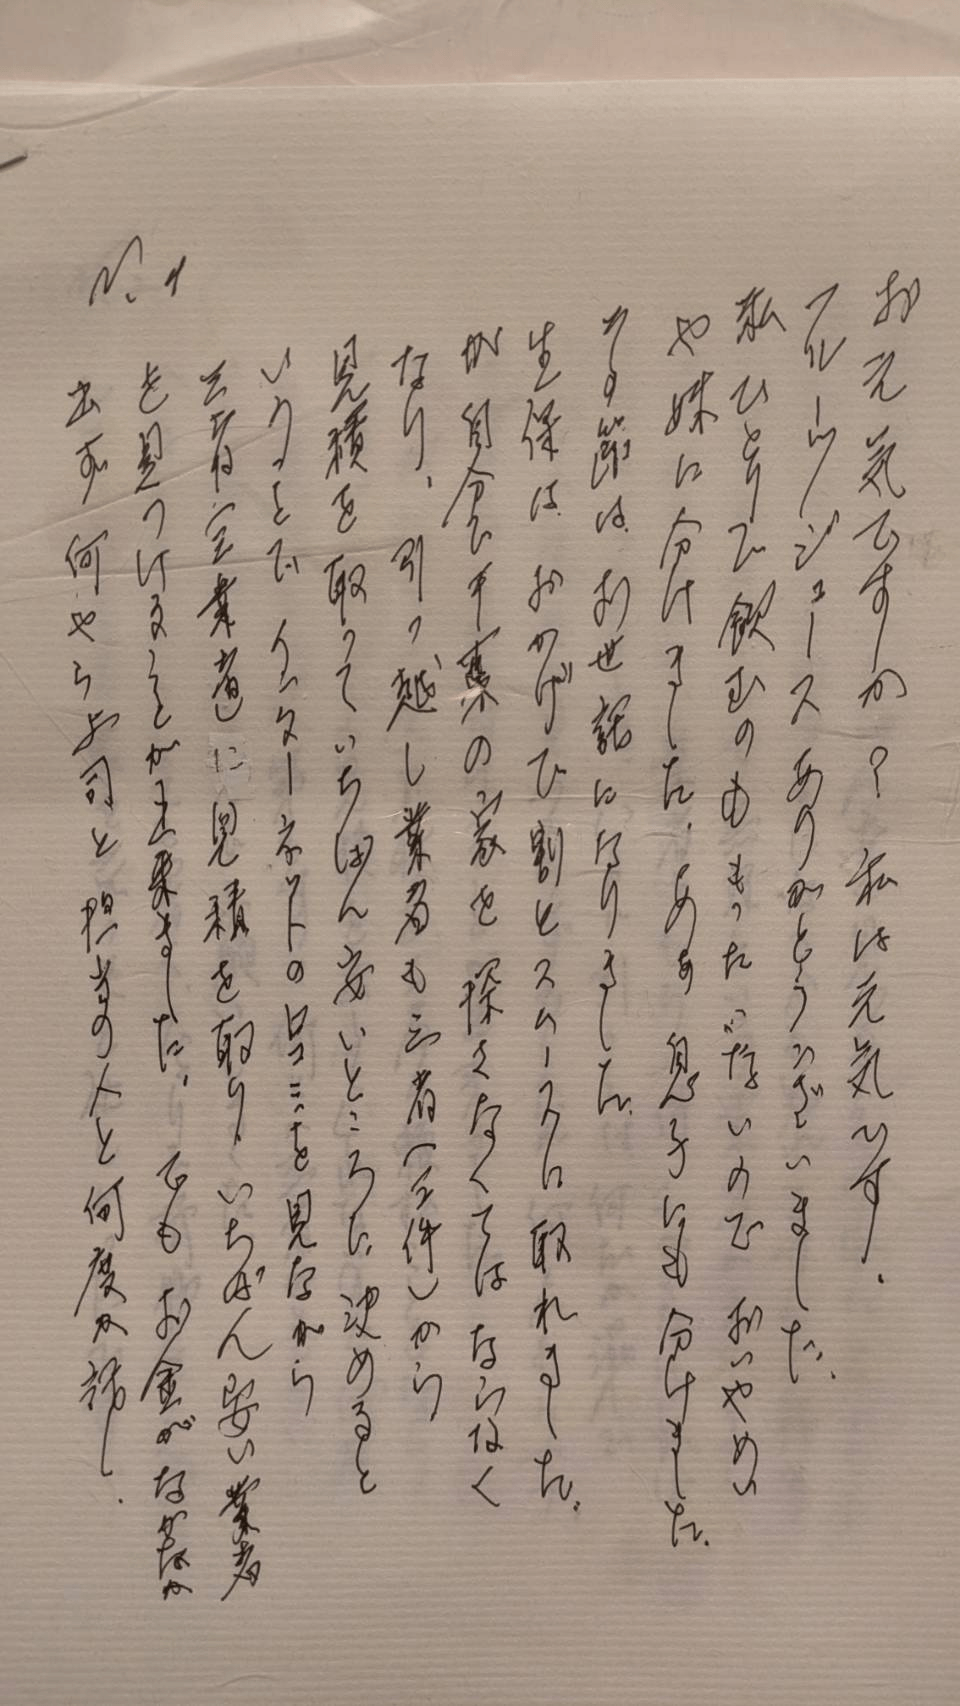 お元気ですか?私は元気です.
フルーツジュースありがとうございました.
私ひとりで飲むのももったいないので おいやめい
や妹に分けました.あぁ 息子にも分けました.
その節は お世話になりました.
生保は おかげで割とスムースに取れました.
が 自分で千葉の家を探さなくてはならなく
なり、引っ越し業者も三者(三件)から
見積を取っていちばん安いところに決めると
いうことで インターネットの口コミを見ながら
三者、業者に見積を取り、いちばん安い業者
を見つけることが出来ました.でも お金がなかなか
出ず 何やら上司と担当の人と何度か話し.
No.1